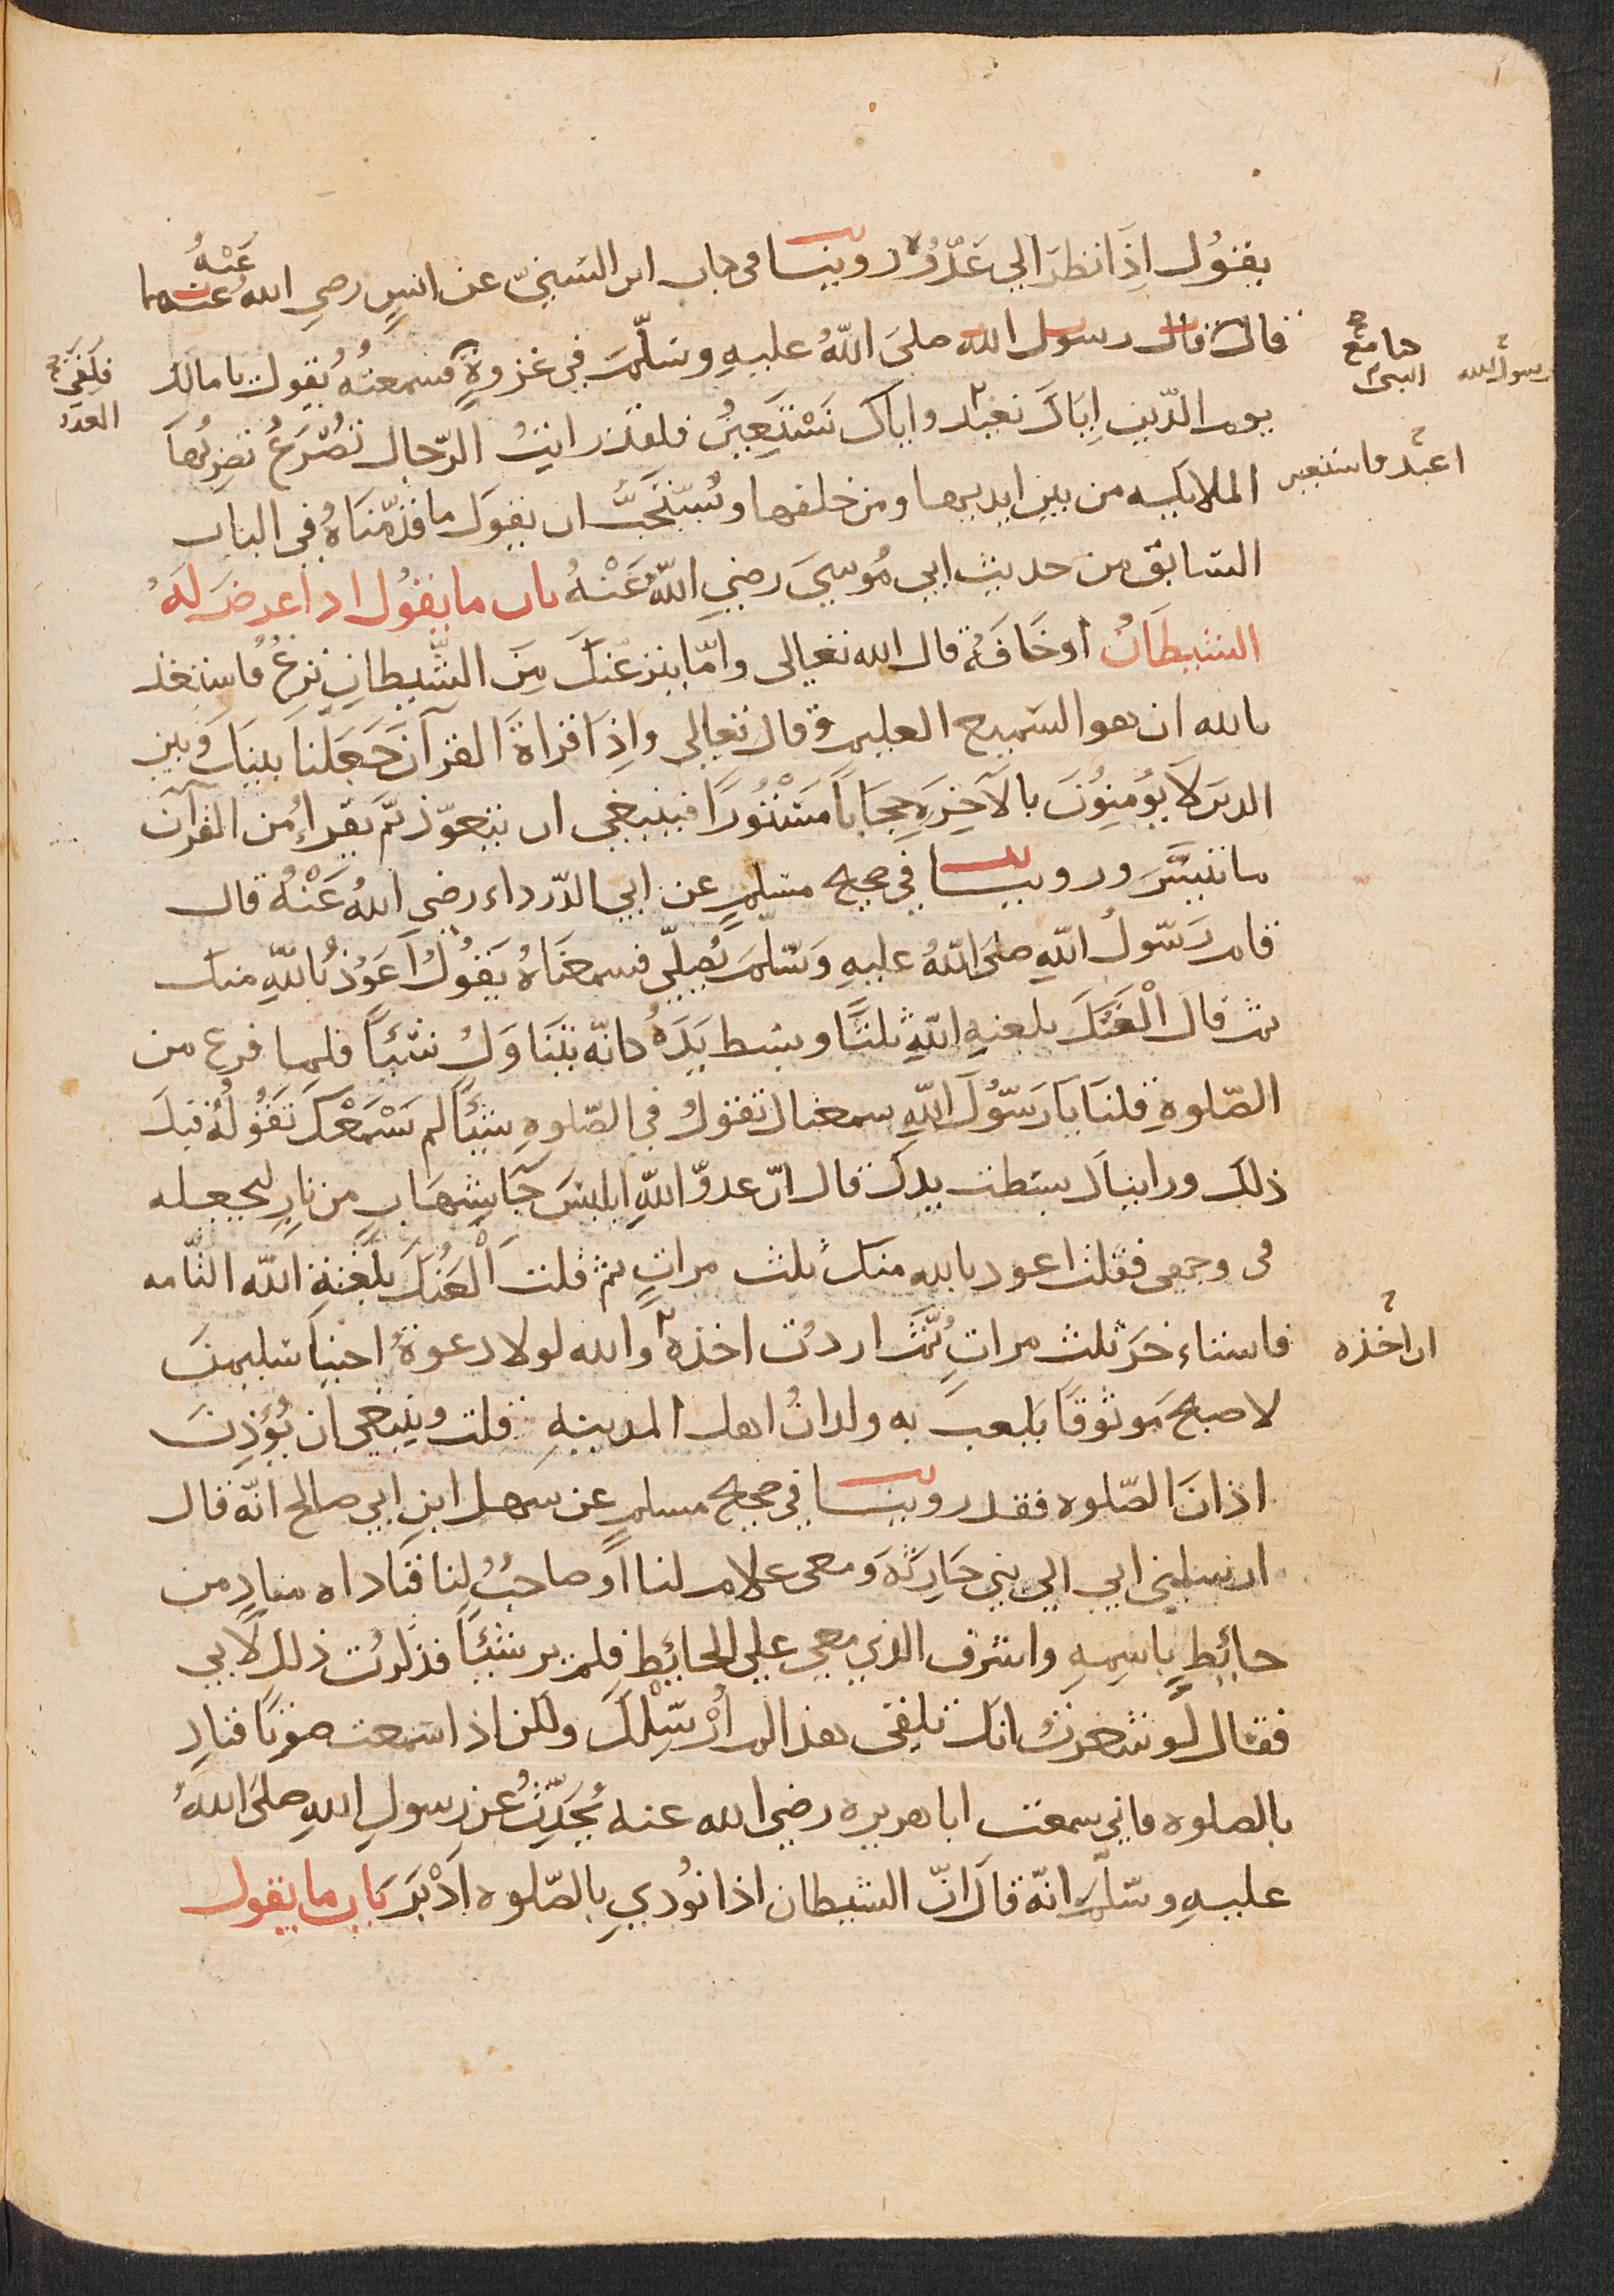 يقول اذا نظر الي عدوّه روينا في كتاب ابن السنيّ عن انسٍ رضي الله عنهما عَنْهُ
قال قال رسول الله صلى اللّهُ عليهِ وسَلّمَ في غزوةٍ فسمعتهُ يقول يا مالك
كنا مع النبي
رسول الله
فلقي العدو
يوم الدّين اِيّاكَ نعبد واياك نَسْتَعِينُ فلقد رايتُ الرّجال تُصْرَعُ تضربُها
اعبد واستعين
الملايكة من بين ايديها ومن خلفها ويُستَحَبُّ ان يقولَ ما قدّمنَاهُ في الباب
السّابق من حديث ابي مُوسيَ رضيَ اللّهُ عَنْهُ باب ما يقُول اذا عرضَ لَهُ
الشيطَانُ أو خَافَهُ قال الله تعالى وامّا ينزغنّكَ مِنَ الشّيطانِ نزغٌ فاستعذ
بالله ان هو السّميع العليم وقال تعالي واِذَا قراةَ القرآن جَعَلْنا بينَكَ وبين
الذين لا يُؤمِنُونَ بالآخِرَةِ حِجَاباً مَسْتُورًا فينبغي ان يتعوّذ ثمّ يقراءُ من القرآن
ما تيسَّرَ وروينا في صحيح مسلمٍ عن ابي الدّرداء رضي اللّهُ عَنْهُ قال
قام رَسُولُ اللّهِ صلىَ اللّهُ عليهِ وَسَلّمَ يُصلّي فسمعنَاهُ يقُولُ اَعَوُذُ باللّهِ منك
ثم قالَ اْلْعَنُكَ بلعنهِ اللّهِ ثلثًا وبسط يَدَهُ كانّه يتنَاوَلُ شيئًا فلما فرغ من
الصّلوةِ قلنَا يَا رَسُولَ اللّهِ سمعناك تقولُ في الصّلوةِ شيئًا لم نَسْمَعْكَ تقُولُهُ قبلَ
ذلك ورايناك بسَطتَ يدك قال انّ عدوّ اللّهِ ابليسَ جَا بشِهَابٍ من نارٍ ليجعله
في وجهي فقلت اعوذ بالله منك ثلث مراتٍ ثم قلت اَلْعَنُكَ بلَعْنةِ اللّه التّامه
فاستاءخرَ ثلث مراتٍ ثُمَّ اردت اخذهُ والله لولا دعوةُ اخينَا سليمنَ
ان اخذه
لاصبحَ مَوثوقًا يَلعبَ به ولدانُ اهل المدينهِ قلت وينبغي ان يُؤَذِنَ
اذانَ الصّلوه فقد روينا في صحيح مسلمٍ عن سهل ابنِ ابي صالح انّه قال
ارسلني ابي الي بني حَارِثَةَ ومعي غلام لنا اَو صاحبٌ لنا فنَاداه منادٍ من
حائِطٍ بِاسِمِهِ واشرف الذي معي علي الحائِطِ فلم ير شيئًا فذكرت ذلك لابي
فقال لَو شعرت انك تلقى هذا لم اُرْسِلْكَ ولكن اذا سمعت صوتًا فنادِ
بالصلوه فاني سمعت ابا هريره رضي الله عنه يُحَدِّثُ عن رسولِ اللهِ صلىَ اللهُ
عليهِ وسَلّمَ انّه قالَ انّ الشيطان اذا نوُدِيِ بِالصّلوه اَدْبَرَ بَاب ما يقول